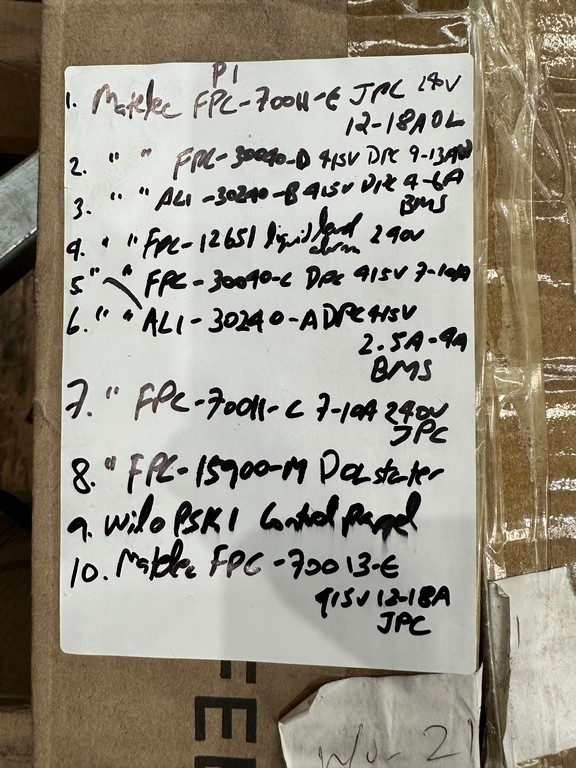 P1
1. Matelec FPC-70011-E JPC 240V
12-18A OL
2. " " FPC-30040-D 415V DPC 9-13A
3. " " ALI-30240-B 415V DPC 4-6A
BMS
4. " " FPC-12651 liquid level
alarm 240V
5. " " FPC-30040-C DPC 415V 7-10A
6. " " ALI-30240-A DPC 415V
2.5A-4A
BMS
7. " FPC-70011-C 7-10A 240V
JPC
8. " FPC-15900-M DOL starter
9. Wilo PSK1 Control Panel
10. Matelec FPC-70013-E
415V 12-18A
JPC
FEE
W/O- 21